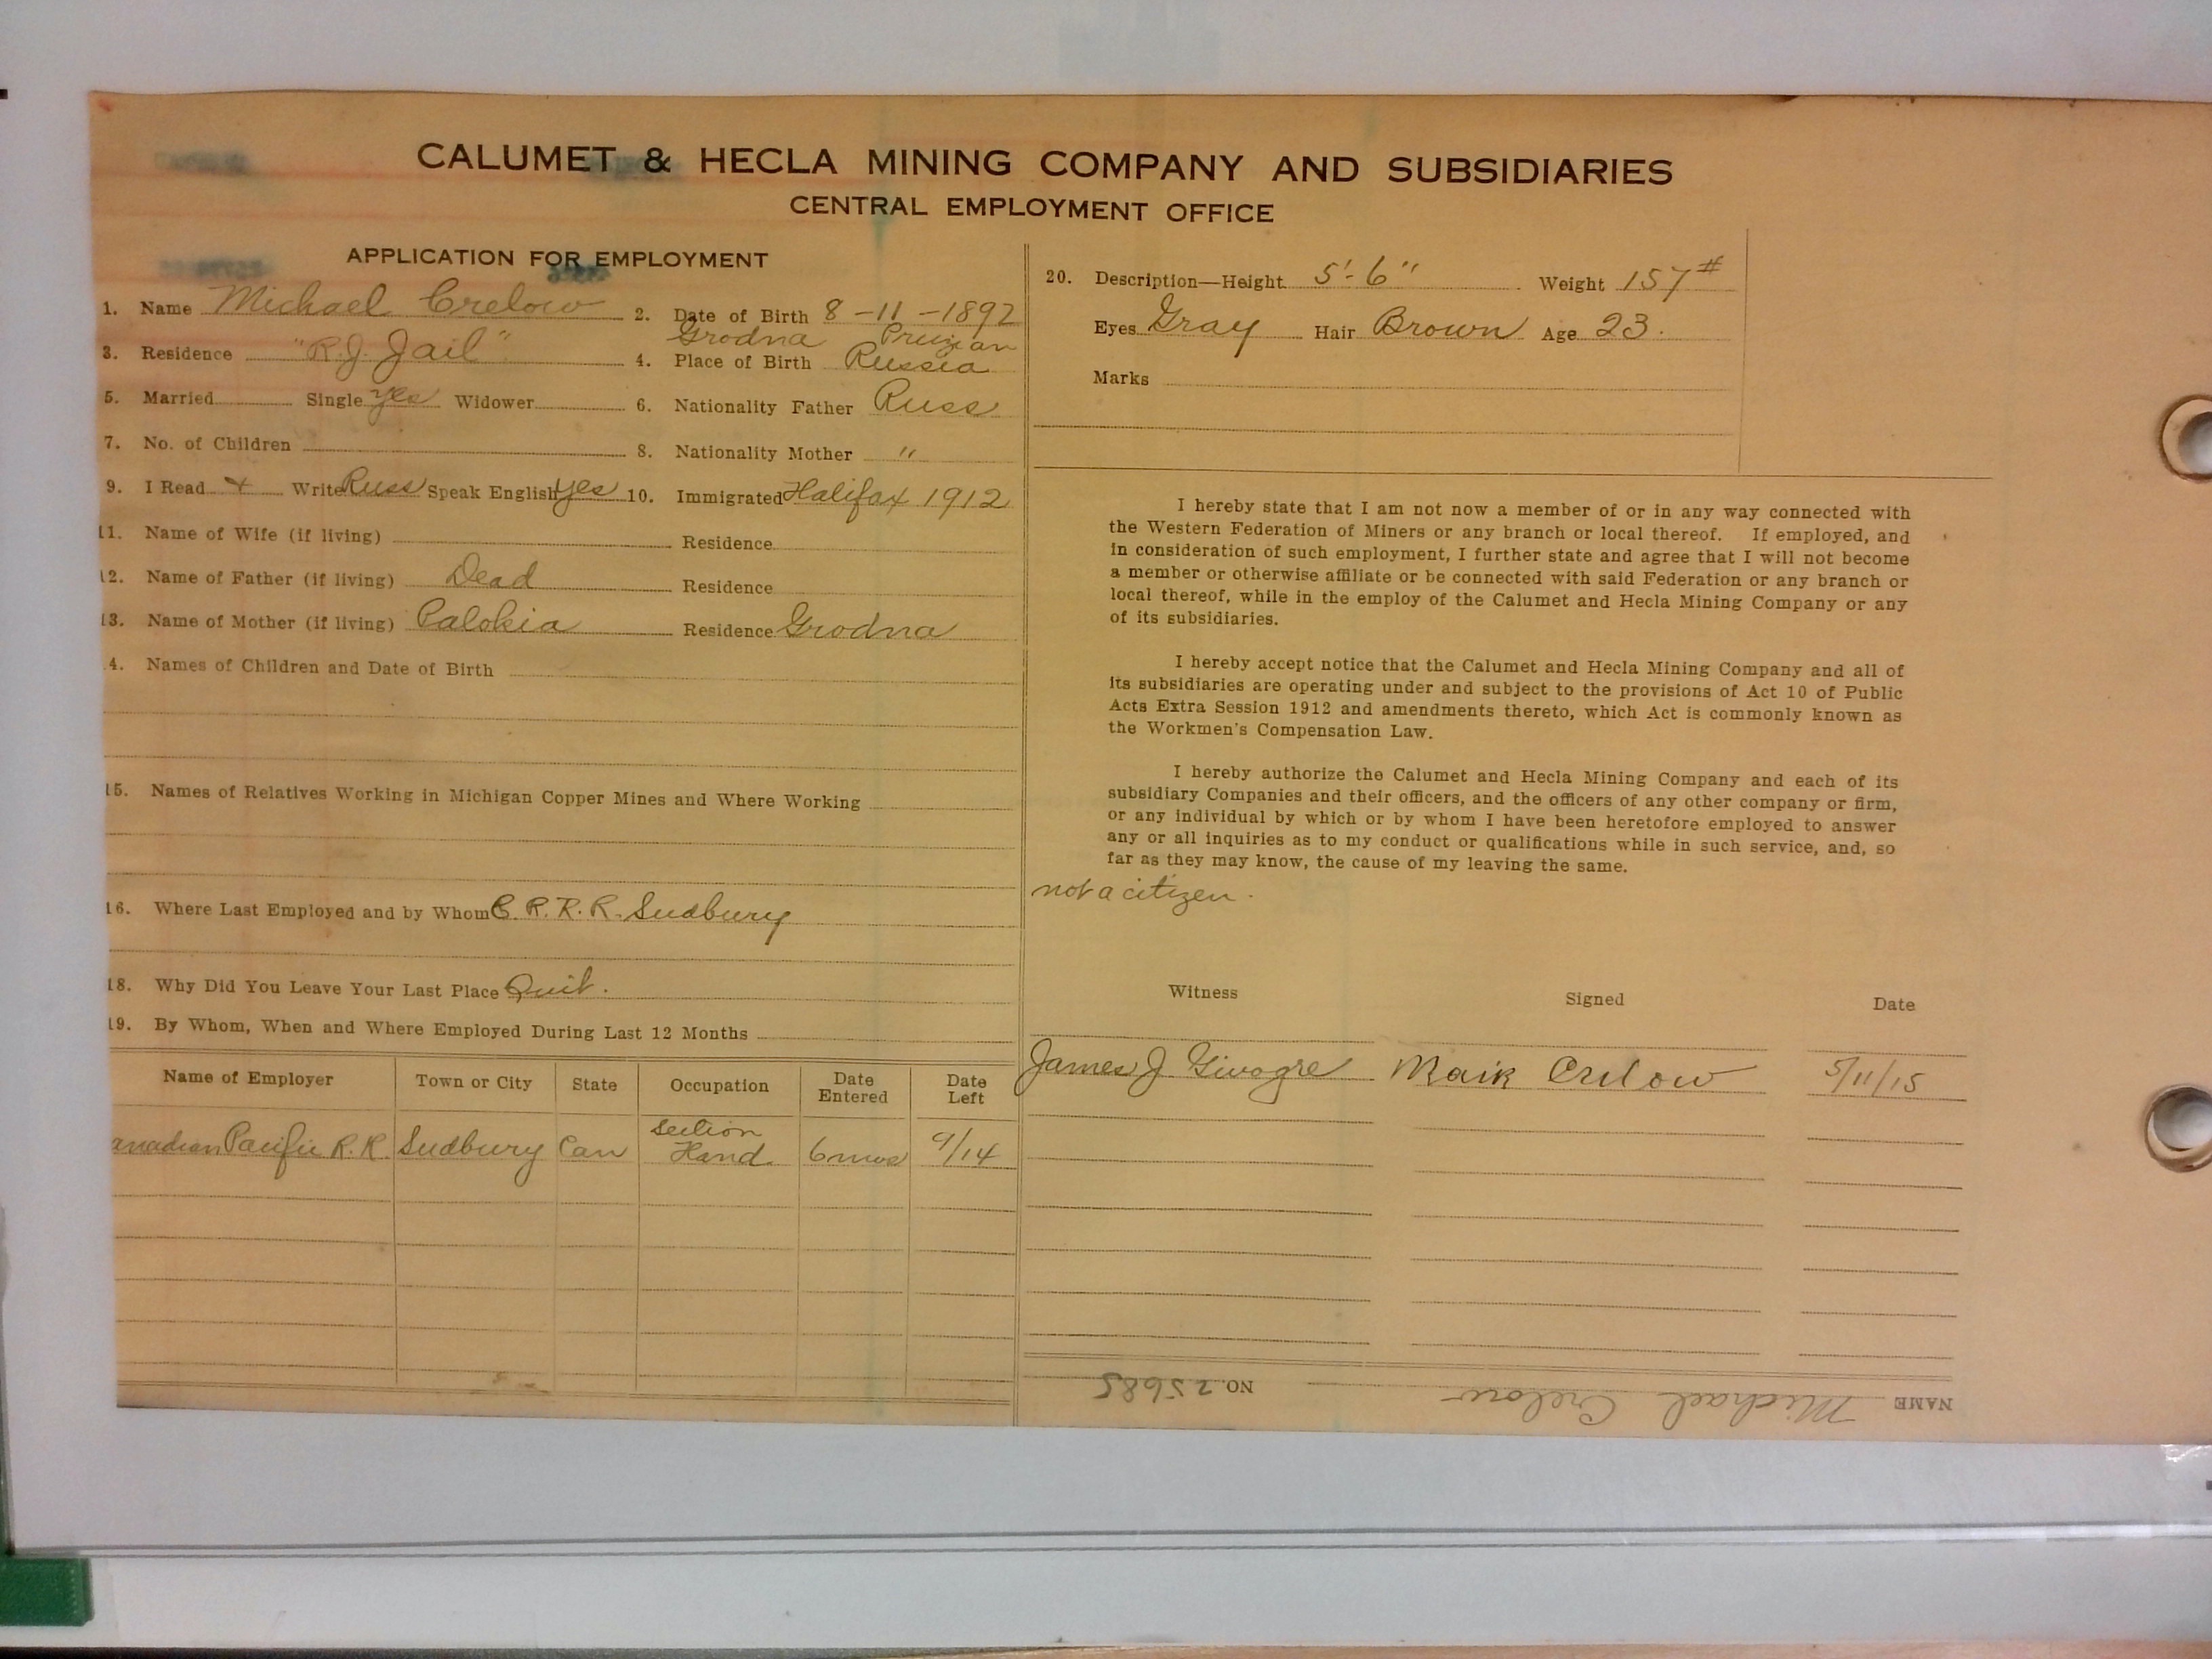 CALUMET & HECLA MINING COMPANY AND SUBSIDIARIES
CENTRAL EMPLOYMENT OFFICE
APPLICATION FOR EMPLOYMENT
1. Name Michael Crelow 2. Date of Birth 8-11-1892
Grodna Pruzian
3. Residence "R.J. Jail" 4. Place of Birth Russia
5. Married Single yes Widower 6. Nationality Father Russ
7. No. of Children 8. Nationality Mother "
9. I Read + Write Russ Speak English yes 10. Immigrated Halifax 1912
11. Name of Wife (if living) Residence
12. Name of Father (if living) Dead Residence
13. Name of Mother (if living) Palokia Residence Grodna
14. Names of Children and Date of Birth
15. Names of Relatives Working in Michigan Copper Mines and Where Working
16. Where Last Employed and by Whom C. P. R. R. Sudbury
18. Why Did You Leave Your Last Place Quit.
19. By Whom, When and Where Employed During Last 12 Months
Name of Employer Town or City State Occupation Date Entered Date Left
anadian Pacific R.R. Sudbury Can Section Hand 6 mos 9/14
20. Description—Height 5'-6" Weight 157#
Eyes Gray Hair Brown Age 23.
Marks
I hereby state that I am not now a member of or in any way connected with
the Western Federation of Miners or any branch or local thereof. If employed, and
in consideration of such employment, I further state and agree that I will not become
a member or otherwise affiliate or be connected with said Federation or any branch or
local thereof, while in the employ of the Calumet and Hecla Mining Company or any
of its subsidiaries.
I hereby accept notice that the Calumet and Hecla Mining Company and all of
its subsidiaries are operating under and subject to the provisions of Act 10 of Public
Acts Extra Session 1912 and amendments thereto, which Act is commonly known as
the Workmen's Compensation Law.
I hereby authorize the Calumet and Hecla Mining Company and each of its
subsidiary Companies and their officers, and the officers of any other company or firm,
or any individual by which or by whom I have been heretofore employed to answer
any or all inquiries as to my conduct or qualifications while in such service, and, so
far as they may know, the cause of my leaving the same.
not a citizen.
Witness Signed Date
James J Maik Crelow 5/11/15
NAME Michael Crelow NO. 25685